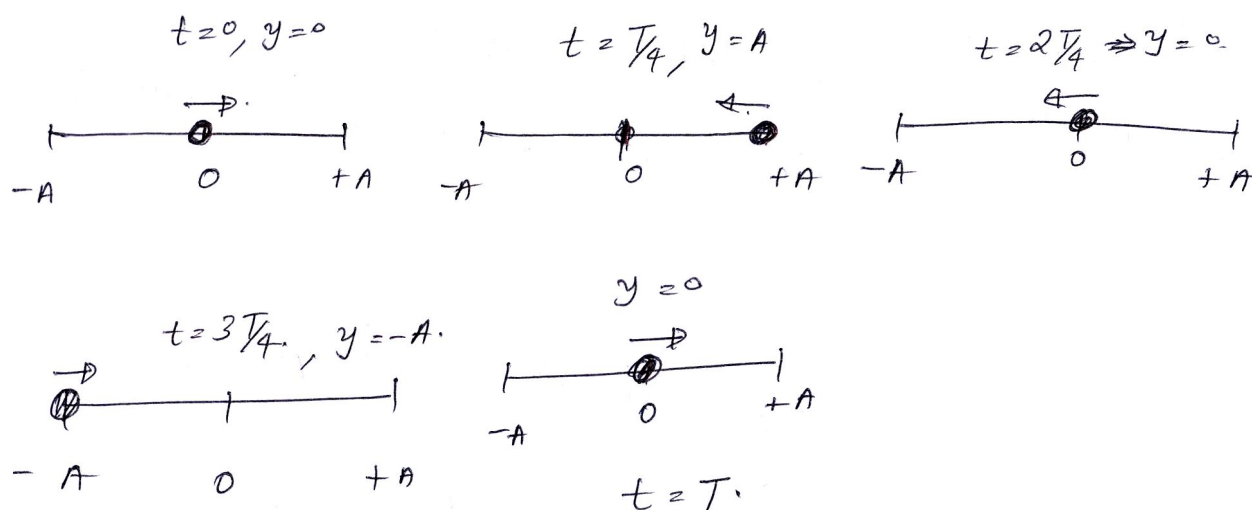 t=0, y=0
-A 0 +A
t = T/4, y = A
-A 0 +A
t=2T/4 ⇒ y = 0.
-A 0 +A
t=3T/4. , y=-A.
-A 0 +A
y=0
-A 0 +A
t = T.